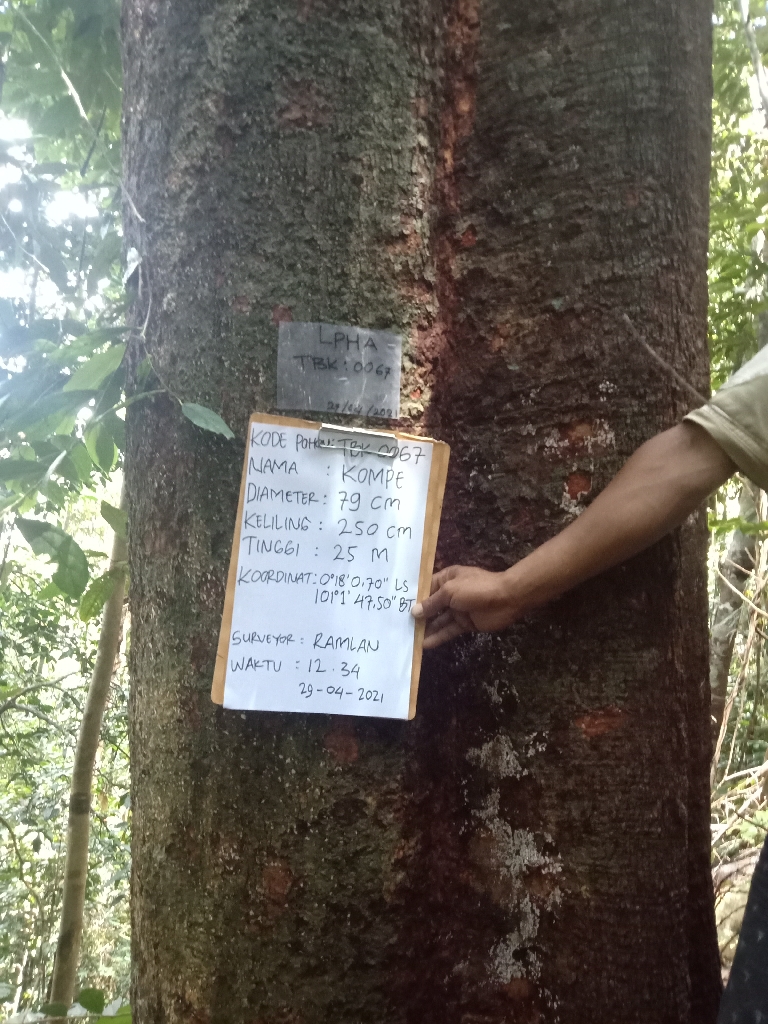 LPHA
TBK : 0067
29/04/2021
KODE POHON : TBK 0067
NAMA : KOMPE
DIAMETER : 79 cm
KELILING : 250 cm
TINGGI : 25 M
KOORDINAT : 0°18'0,70" LS
101°1' 47,50" BT
SURVEYOR : RAMLAN
WAKTU : 12.34
29-04-2021